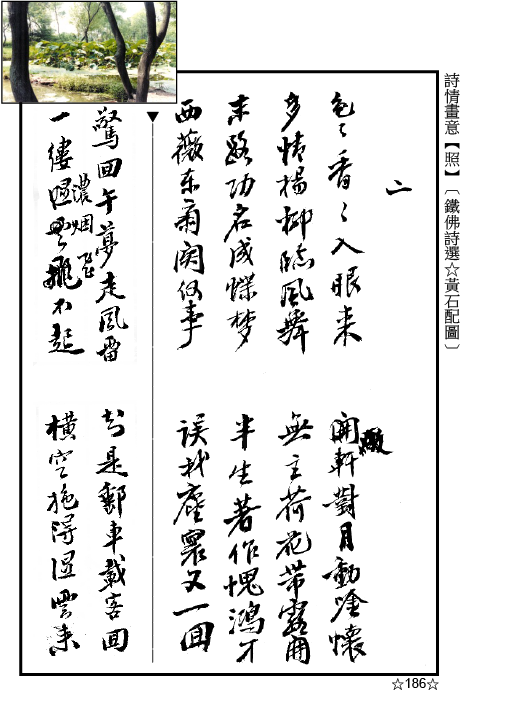 詩情畫意【照】〔鐵佛詩選☆黃石配圖〕
二
色〻香〻入眼来 開軒對月動吟懷
多情楊柳臨風舞 無主荷花带露開
末路功名成蝶梦 半生著作愧鴻才
西薇东菊関何事 误我塵寰又一回
驚回午夢走風雷 却是郵車載客回
一縷濃烟飛不起 橫空拖得濕雲来
☆186☆